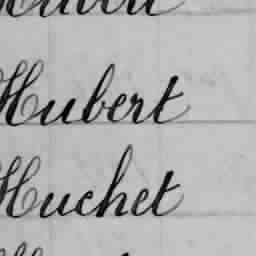 Hubert
Huchet